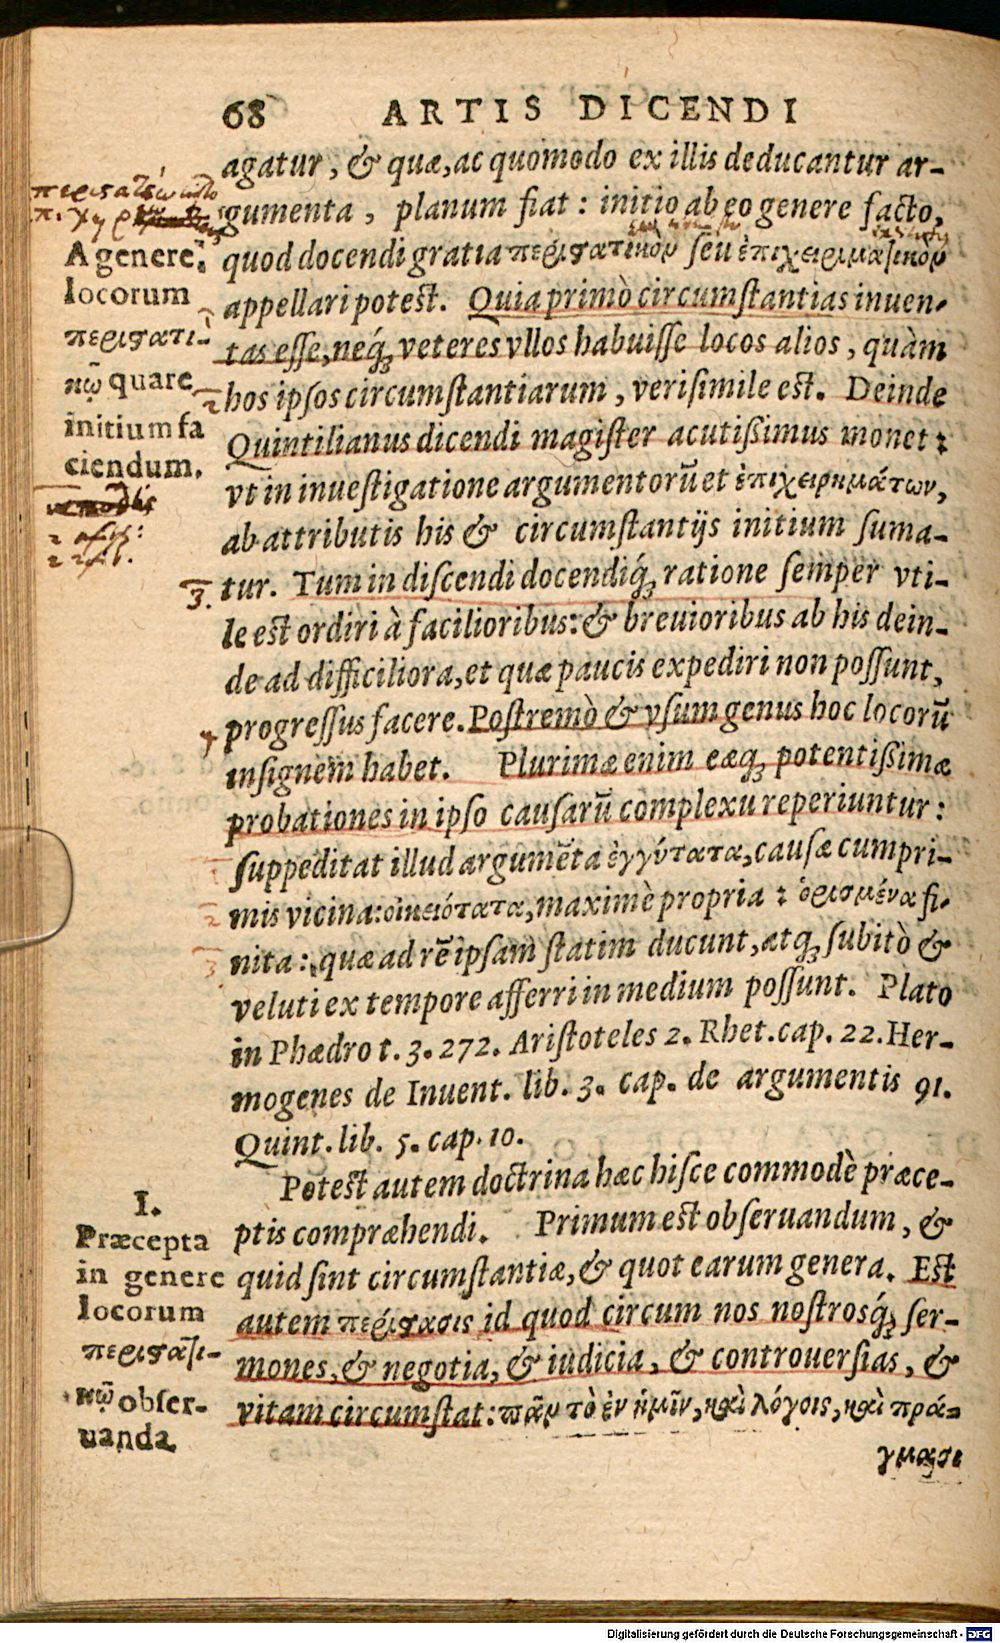 68 ARTIS DICENDI
agatur, & quæ, ac quomodo ex illis deducantur ar-
gumenta, planum fiat: initio ab eo genere facto,
quod docendi gratia περιστατικὸν seu ἐπιχειρματικὸν
appellari potest. Quia primò circumstantias inuen-
tas esse, neq́ue veteres vllos habuisse locos alios, quàm
hos ipsos circumstantiarum, verisimile est. Deinde
Quintilianus dicendi magister acutißimus monet:
vt in inuestigatione argumentorū et ἐπιχειρημάτων,
ab attributis his & circumstantijs initium suma-
tur. Tum in discendi docendiq́ue ratione semper vti-
le est ordiri à facilioribus: & breuioribus ab his dein-
de ad difficiliora, et quæ paucis expediri non possunt,
progressus facere. Postremò & vsum genus hoc locorū
insignem habet. Plurimæ enim eæque potentißimæ
probationes in ipso causarū complexu reperiuntur:
suppeditat illud argumēta ἐγγύτατα, causæ cum pri-
mis vicina: οἰκειότατα, maximè propria: ὁρισμένα fi-
nita: quæ ad rē ipsam statim ducunt, atque subitò &
veluti ex tempore afferri in medium possunt. Plato
in Phædro t. 3. 272. Aristoteles 2. Rhet. cap. 22. Her-
mogenes de Inuent. lib. 3. cap. de argumentis 91.
Quint. lib. 5. cap. 10.
Potest autem doctrina hæc hisce commodè præce-
ptis compræhendi. Primum est obseruandum, &
quid sint circumstantiæ, & quot earum genera. Est
autem περίστασις id quod circum nos nostrosq́ue ser-
mones, & negotia, & iudicia, & controuersias, &
vitam circumstat: πᾶν τὸ ἐν ἡμῖν, καὶ λόγοις, καὶ πρά-
γμασι
A genere
locorum
περιστατι-
κῷ quare
initium fa
ciendum.
3.
I.
Præcepta
in genere
locorum
περιστατι-
κῷ obser-
uanda.
Digitalisierung gefördert durch die Deutsche Forschungsgemeinschaft - DFG